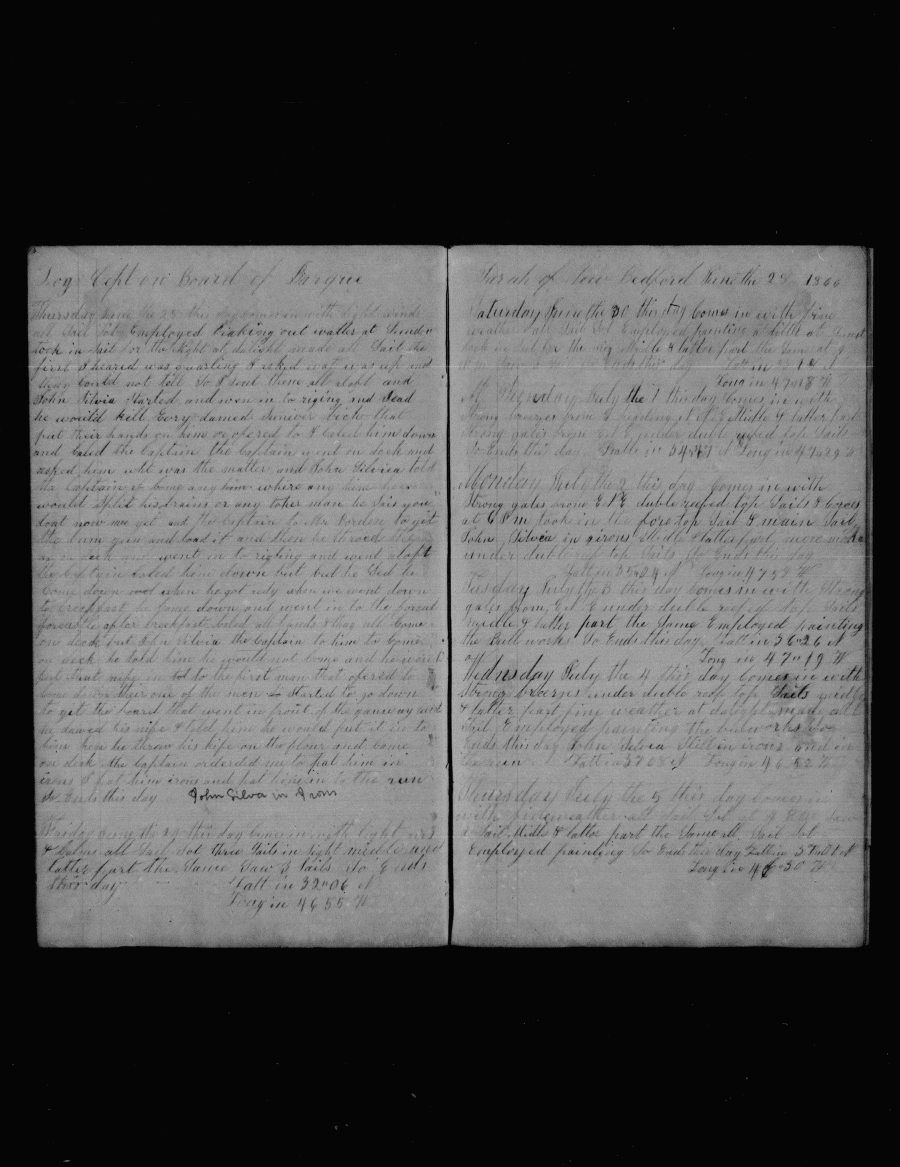 Log Kept on Board of Barque
Thursday June the 28 this day comes in with light winds
all Sail Sot Employed Braking out watter at Sundo
took in Sail for the Night at dalight made all Sail the
first I heared was quarling I asked wat was up and
they Could not tell So I sent them all aloft and
John Silvia Started and wen in to riging and Sead
he would kill Eery damed
put their hands on him or opered to I Caled him down
and Caled the Captain the Captain went on deck and
asked him wht was the matter and John Silvia told
the Captain if
would Split his brains or any other man he Sais you
dont now me yet and the Captain to Mr Borden to git
the hum gun and load it and then he
went in to riging and went aloft
the Captain Caled him down but he Sed he
Come down when he got redy when we went down
to breackfast he Came down and went in to the
after breckfast Caled all hands thay all Come
on deck but John Silvia the Captain to him to Come
on deck he told him he would not Come and he would
put that nife in to the first man that opered to
Come down ther one of the men Started to go down
to get the board that went in front of the ganway and
he drawed his nife & told him he would put it in to
him then he throw his kife on the flour and Come
on deck the Captain ordered me to put him in
irons I put him irons and put him in to the run
So Ends this day John Silva in Irons
Friday June the 29 this day comes in with light
& Calms all Sail Sot three Sails in Sight middle and
latter part the Same Saw 3 Sails So Ends
this day Latt in 32"06 N
Long in 46 55 W
Sarah of New Bedford June the 28 1866
Saturday June the 30 this day Comes in with fine
weather all Sail Sot Employed painting a little at Sunset
took in Sail for the nig Middle & latter part the Same
Ends this day Latt in
Long in 47"18 W
Sunday July the 1 this day Comes in with
Strong breezes from E N E Midle & latter part
Strong gales from Est E under duble reped top Sails
So Ends this day Latt in 34"47 N Long in 47"29 W
Monday July the 2 this day Comes in with
Strong gales from E N E duble reefed top Sails & Courses
at 6 Pm took in the fore top Sail & main Sail
John Silvia in irons Midle & latter part
under duble reef top Sails So Ends this day
Latt in 35"24 N Long in 47"52 W
Tuesday July the 3 this day Comes in with Strong
gales from Est E under duble reefed top Sails
Middle & latter part the Same Employed painting
the Bull works So Ends this day Latt in 36"26 N
Long in 47"19 W
Wednsday July the 4 this day Comes in with
Strong breezes under duble reef top Sails midle
& latter part fine weather at dalight made all
Sail Employed painting the bulworks So
Ends this day John Silvia Still in irons and in
the run Latt in 37"08 N Long in 46"52 W
Thursday July the 5 this day Comes in
with fine weather all Sail Sot at 4 Pm Saw
a Sail Midle & latter part the Same all Sail Sot
Employed painting So Ends the day Latt in N
Long in 46"30 W